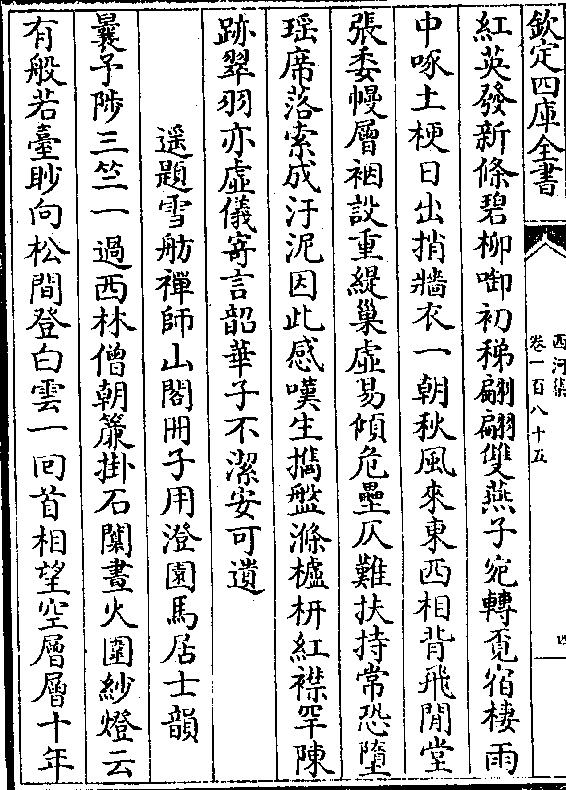 欽定四庫全書
西河集
卷一百八十五
四
紅英發新條碧柳啣初稊翩翩雙燕子宛轉覓宿棲雨
中啄土梗日出捎牆衣一朝秋風來東西相背飛閒堂
張委幔層裀設重緹巢虛易傾危壘仄難扶持常恐墮
瑶席落索成汙泥因此感嘆生攜盤滌櫨枅紅襟罕陳
跡翠羽亦虛儀寄言韶華子不潔安可遺
遥題雪舫禪師山閣冊子用澄園馬居士韻
曩予陟三竺一過西林僧朝簾掛石闌晝火圍紗燈云
有般若臺眇向松間登白雲一回首相望空層層十年